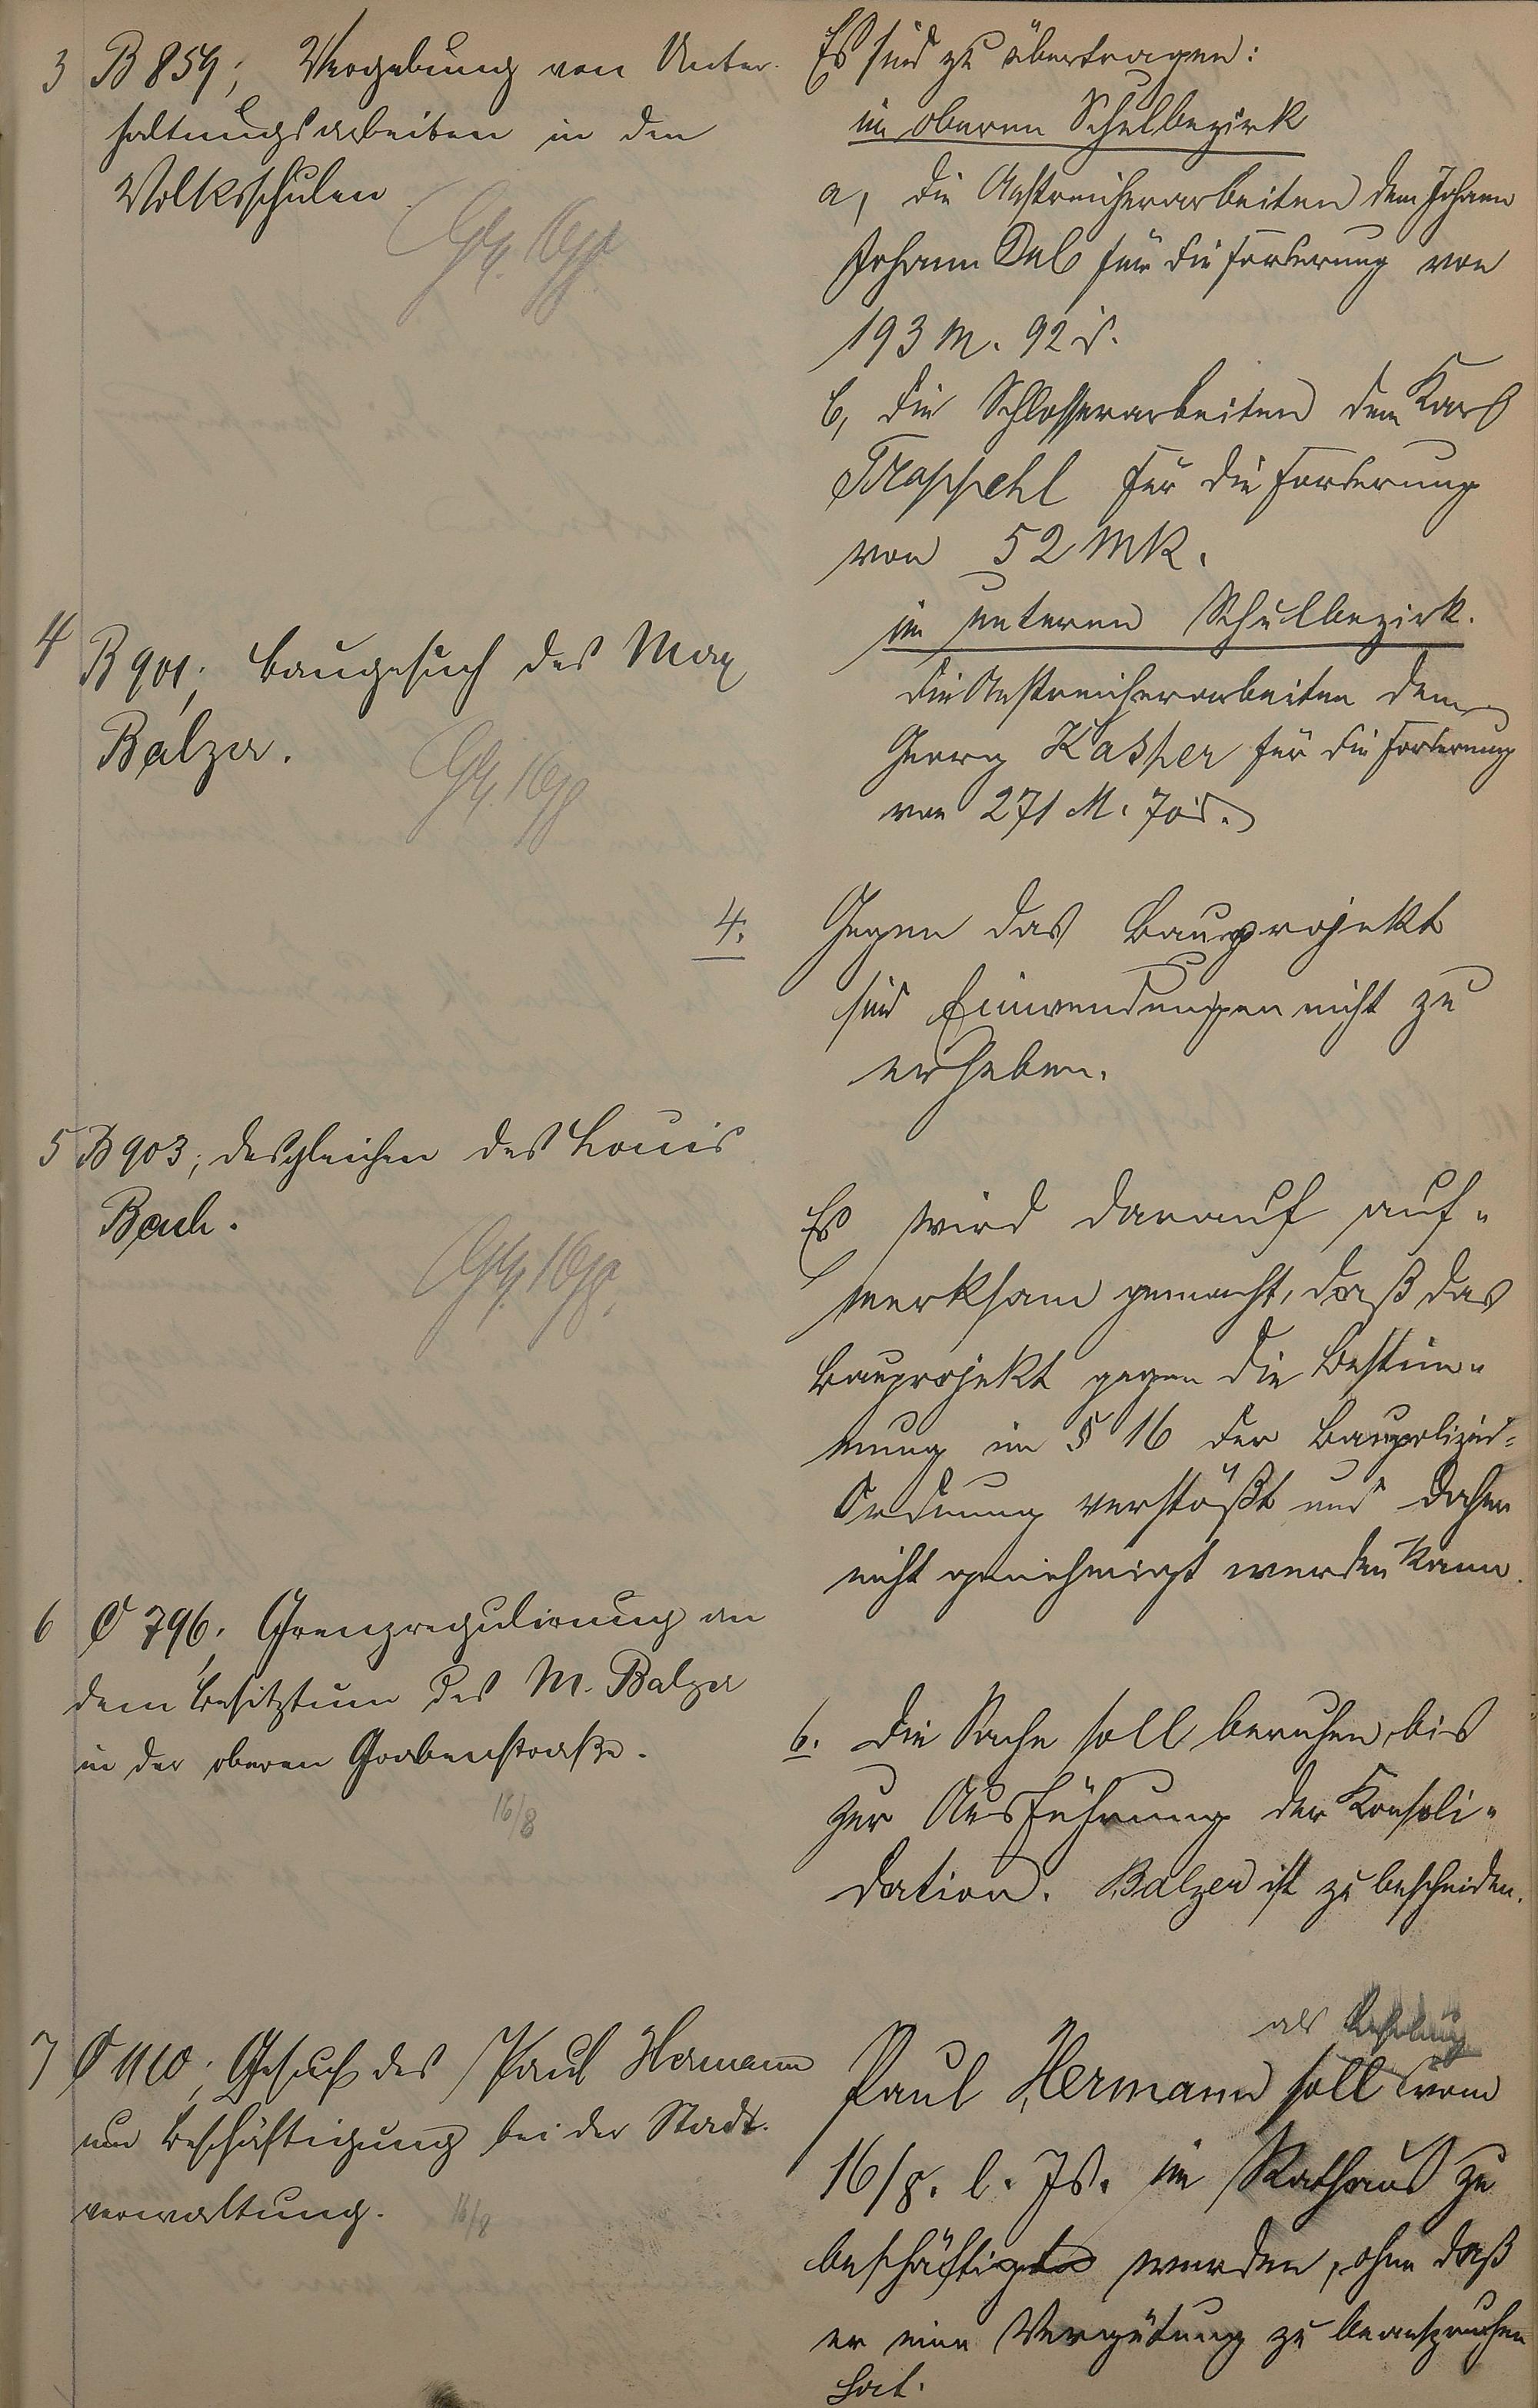 3 B 859; Vergebung von Unter-
haltungsarbeiten in den
Volksschulen
Es sind zu übertragen:
im oberen Schulbezirk
a, die Anstreicherarbeiten dem Johann
Johann Dul für die Forderung von
193 M. 92 ₰.
b, die Schlosserarbeiten dem Karl
Trappehl für die Forderung
von 52 Mk.
im unteren Schulbezirk.
die Anstreicherarbeiten dem
Georg Kasper für die Forderung
von 271 M. 70 ₰.
4 B 901; Baugesuch des Max
Balzer.
4. Gegen das Bauprojekt
sind Einwendungen nicht zu
erheben.
5 B 903; desgleichen des Louis
Bach.
Es wird darauf auf-
merksam gemacht, daß das
Bauprojekt gegen die Bestim-
mung im § 16 der Baupolizei-
Ordnung verstößt und daher
nicht genehmigt werden kann.
6 C 796, Grenzregulierung an
dem Besitztum des M. Balzer
in der oberen Grabenstraße.
16/8
6. Die Sache soll beruhen bis
zur Ausführung der Konsoli-
dation. Balzer ist zu bescheiden.
7 C 1110; Gesuch des Paul Hermann
um Beschäftigung bei der Stadt-
verwaltung.
16/8
als
Paul Hermann soll vom
16/8. l. Js. im Rathaus zu
beschäftigt werden, ohne daß
er eine Vergütung zu beanspruchen
hat.